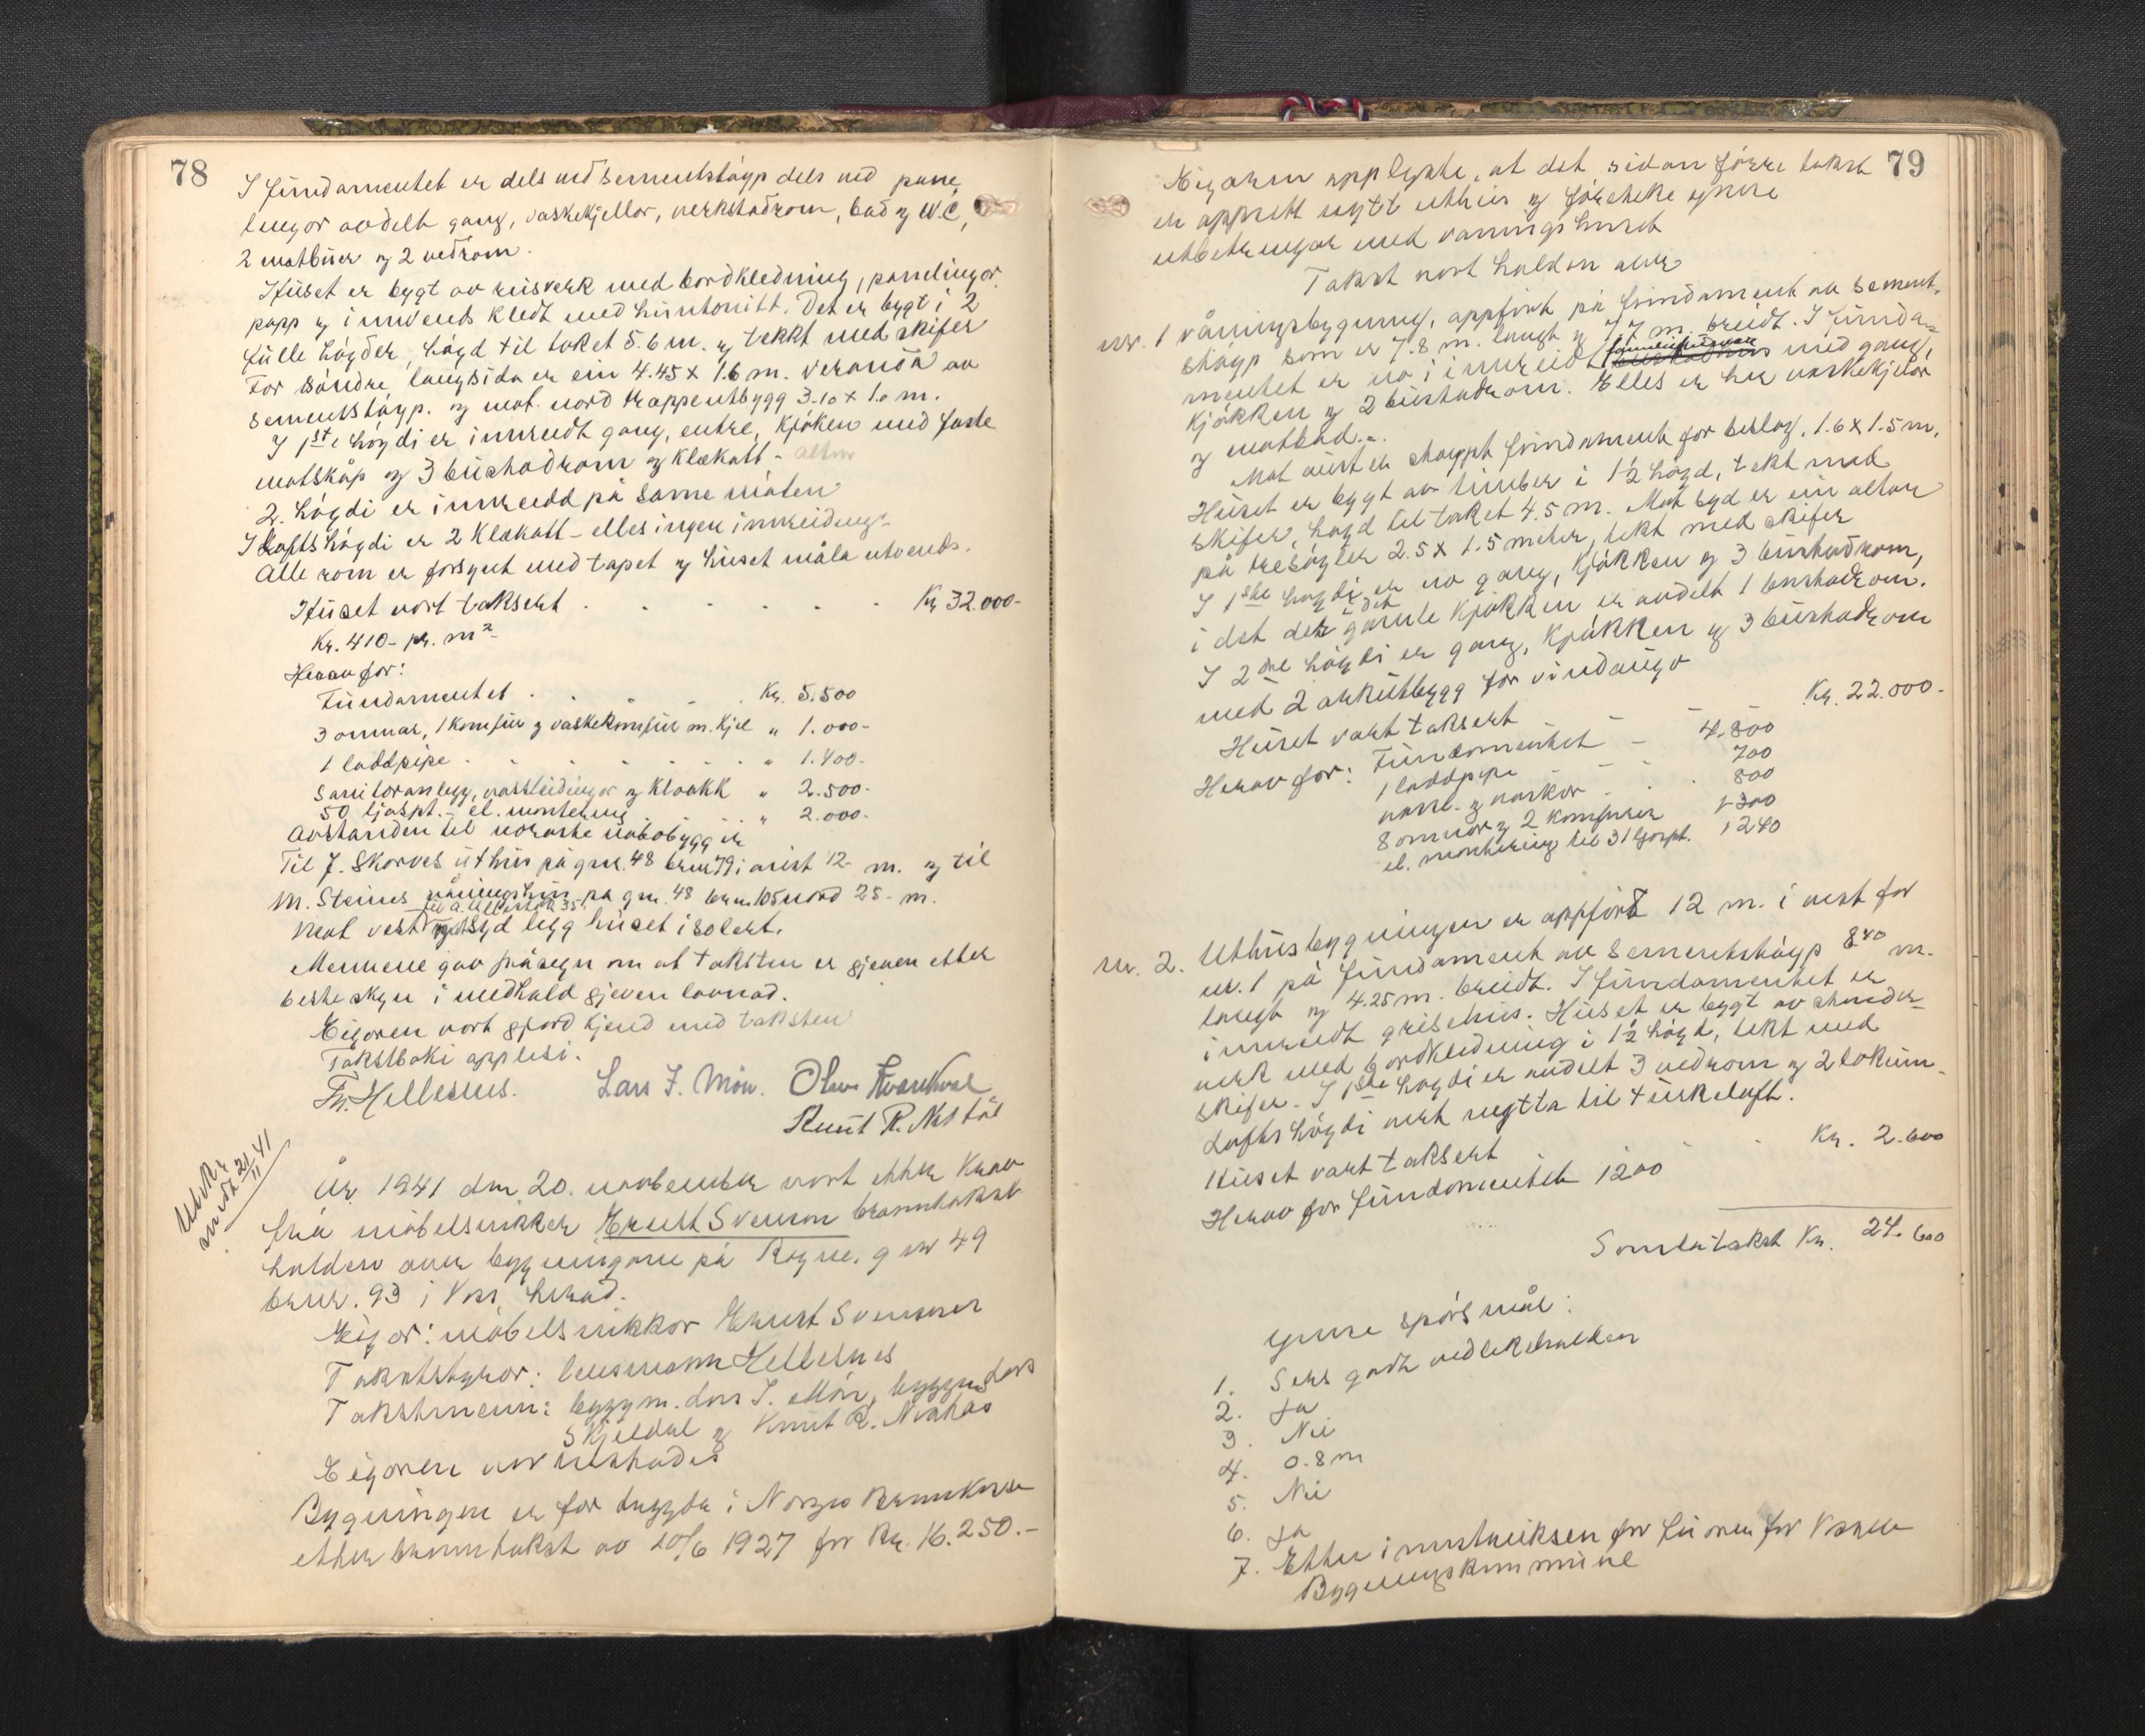 78
I fundamentet er dels med sementstøyp dels med pane
lingar avdelt gang, vaskekjellar, verkstadrom, bad og W.C,
2 matbuer og 2 vedrom.
Huset er bygt av reisverk med bordkledning, panelingar
papp og innvends kledt med huntonitt. Det er bygt i 2
fulle høgder, høgd til taket 5.6 m. og tekkt med skifer
For søndre langsida er ein 4.45 x 1.6 m. veranda av
sementstøyp. og mot nord trappeutbygg 3.10 x 1.0 m.
I 1ste høgdi er innreidt gang, entre, kjøken med faste
matskåp og 3 bustadrom og klækott -
2. høgdi er innreidd på same måten
I Loftshøgdi er 2 klekott - elles ingen innreidings-
Alle rom er forsynt med tapet og huset måla utvends.
Huset vart taksert . . . . . . Kr 32.000-
Kr. 410- pr. m²-
Herav for:
Fundamentet . . . . Kr. 5.500
3 omnar, 1 komfur og vaskekomfur m. kjel " 1.000-
1 laddpipe . . . . . . " 1.400-
Sanitæranlegg, vassleidingar og kloakk " 2.500-
50 ljospt. - el. montering . . . " 2.000-
Avstanden til næraste nabobygg er
Til J. Skorves uthus på gnr. 48 brnr 79 i aust 12- m. og til
M. Steines våningshus på gnr. 48 brnr. 105 nord 25- m.
Mot vest og syd ligg huset isolert.
Mennene gav påsegn om at taksten er gjeven etter
beste skyn i medhald gjeven lovnad.
Eigaren vart gjord kjend med taksten
Takstboki opplesi.
Fr. Hellesnes. Lars J. Møn. Olav Kvarekval
Knut R. Nestås
Utskr.
sendt 21/11 41
År 1941 den 20. november vart etter krav
frå møbelsnikker Ernst Svenson branntakst
halden over bygningane på Rogne. gnr 49
brnr. 93 i Voss herad.
Eigar: møbelsnikkar Ernst Svenson
Takststyrar: lensmann Hellesnes
Takstmenn: byggm. Lars J. Møn, byggm. Lars
Skjeldal og Knut R. Nestås
Eigaren var tilstades
Bygningen er før trygda i Norges Brannkasse
etter branntakst av 20/6 1927 for Kr. 16.250.-
79
Eigaren opplyste, at det sidan førre takst
er oppsett nytt uthus og føreteke ymse
utbetringar med våningshuset
Takst vart halden over
nr. 1 våningsbygning, oppført på fundament av sement-
støyp som er 7.8 m. langt og 7.7 m. breidt. I funda-
mentet er no i innreidt familiehusvære med gang,
kjøkken og 2 bustadrom. Elles er her vaskekjelar
og matbud..
Mot aust er støypt fundament for beslag. 1.6 x 1.5 m.
Huset er bygt av timber i 1½ høgd, tekt med
skifer, høgd til taket 4.5 m. Mot syd er ein altan
på tresøyler 2.5 x 1.5 meter, tekt med skifer
I 1ste høgdi er no gang, kjøkken og 3 bustadrom,
i det det i det gamle kjøkken er avdelt 1 bustadrom.
I 2dre høgdi er gang, kjøkken og 3 bustadrom
med 2 arkutbygg for vindauge
Huset vart taksert - - Kr. 22.000-
Herav for: Fundamentet - - 4.800
1 laddpipe - - - 700
vassl. og vaskar - . . 800
8 omnar og 2 komfurer 1300
el. montering til 31 ljospt. 1240
nr. 2. Uthusbygningen er oppført 12 m. i vest for
nr. 1 på fundament av sementstøyp 8.40 m.
langt og 4.25 m. breidt. I fundamentet er
innreidt grisehus. Huset er bygt av stender-
verk med bordkledning i 1½ høgd, tekt med
skifer. I 1ste høgdi er avdelt 3 vedrom og 2 lokum-
Loftshøgdi vert nytta til turkeloft.
Huset vart taksert . . Kr. 2.600
Herav for fundamentet 1200
Samla takst Kr. 24.600
Ymse spørsmål:
1. Sers godt vedlikehalden
2. Ja
3. Nei
4. 0.8 m
5. Nei
6. Ja
7. Etter instruksen for feiaren for Vossevangen
Bygningskommune